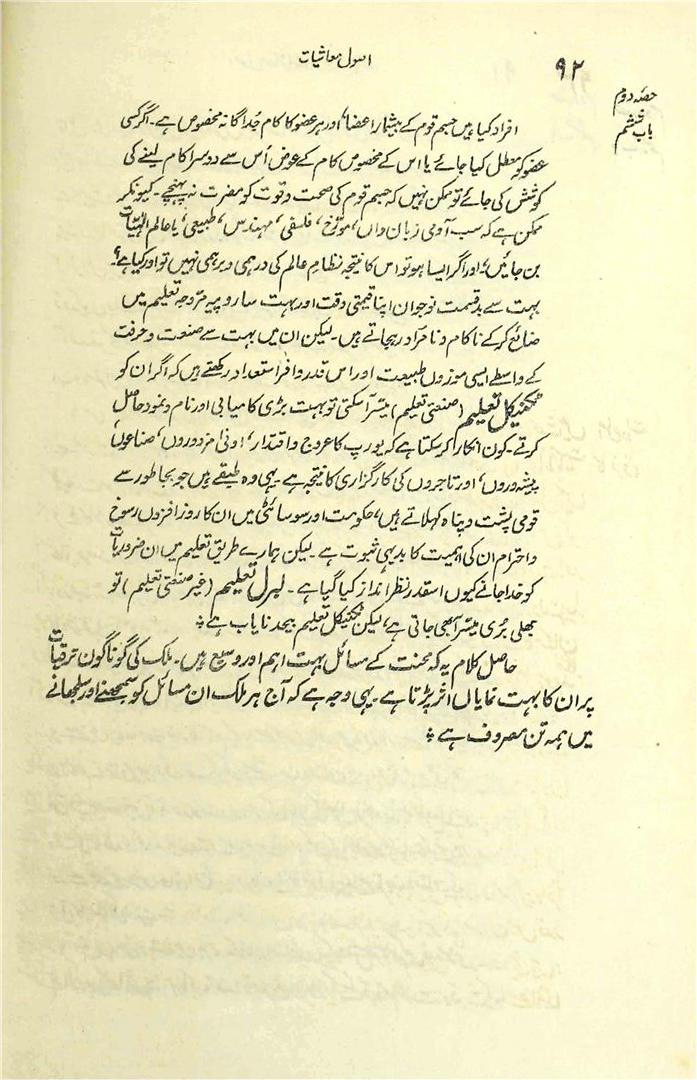 ۹۲
اصول معاشیات
حصہ دوم
باب ششم
افراد کیا ہیں جسم قوم کے بیشمار اعضا، اور ہر عضو کا کام جُدا گانہ مخصوص ہے۔ اگر کسی
عضو کو معطل کیا جائے یا اس کے مخصوص کام کے عوض اُس سے دوسرا کام لینے کی
کوشش کی جائے تو ممکن نہیں کہ جسم قوم کی صحت و قوت کو مضرت نہ پہنچے۔ کیونکر
ممکن ہے کہ سب آدمی زبان داں، مورّخ، فلسفی، مہندس، طبیعی، یا عالم الٰہیات
بن جائیں؛ اور اگر ایسا ہو تو اس کا نتیجہ نظام عالم کی درہمی و برہمی نہیں تو اور کیا ہے؟
بہت سے بد قسمت نوجوان اپنا قیمتی وقت اور بہت سا روپیہ مروّجہ تعلیم میں
ضائع کر کے ناکام و نامراد رہجاتے ہیں۔ لیکن ان میں بہت سے صنعت و حرفت
کے واسطے ایسی موزوں طبیعت اور اس قدر وافر استعداد رکھتے ہیں کہ اگر ان کو
ٹکنیکل تعلیم (صنعتی تعلیم) میسّر آسکتی تو بہت بڑی کامیابی اور نام و نمود حاصل
کرتے۔ کون انکار کر سکتا ہے کہ یورپ کا عروج و اقتدار، ادنیٰ مزدوروں، صناعوں،
پیشہ وروں، اور تاجروں کی کارگزاری کا نتیجہ ہے۔ یہی وہ طبقے ہیں جو بجا طور سے
قومی پشت و پناہ کہلاتے ہیں، حکومت اور سوسائٹی میں ان کا روز افزوں رسوخ
و احترام ان کی اہمیت کا بدیہی ثبوت ہے۔ لیکن ہمارے طریق تعلیم میں ان ضروریات
کو خدا جانے کیوں اسقدر نظر انداز کیا گیا ہے۔ لبرل تعلیم (غیر صنعتی تعلیم) تو
بھلی بُری میسّر آ بھی جاتی ہے، لیکن ٹکنیکل تعلیم بیحد نایاب ہے ؞
حاصل کلام یہ کہ محنت کے مسائل بہت اہم اور وسیع ہیں۔ ملک کی گوناگون ترقیات
پر ان کا بہت نمایاں اثر پڑتا ہے۔ یہی وجہ ہے کہ آج ہر ملک ان مسائل کو سمجھنے اور سلجھانے
میں ہمہ تن مصروف ہے ؞